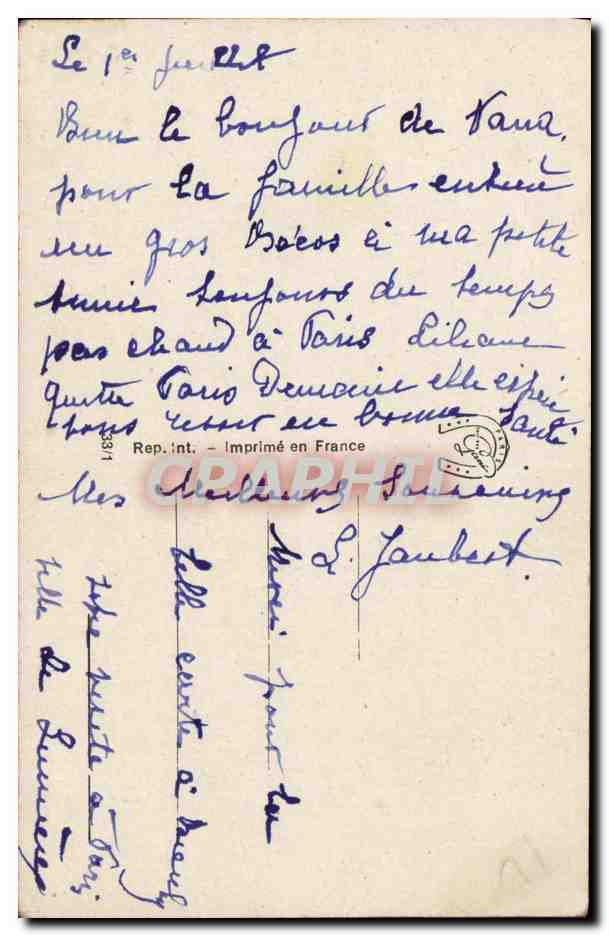 Le 1er Juillet
Bien le bonjour de Nana,
pour la famille entière
un gros Bécos à ma petite
amie toujours du temps
pas chaud à Paris Liliane
quitte Paris Demain elle espère
vous revoir en bonne Santé
33/1 Rep. Int. - Imprimé en France
PARIS
CPAPHIL
Mes Meilleurs Souvenirs
L Jaubert
Merci pour la
belle carte à
votre visite à Paris
ville de Lumières